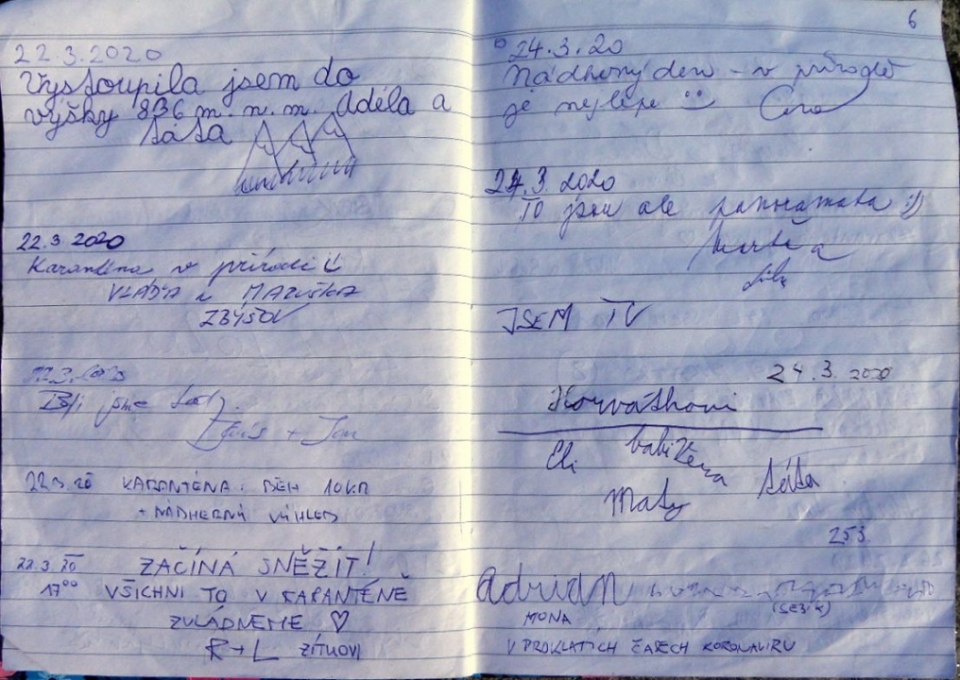 22.3.2020
Vystoupila jsem do
výšky 836 m.n.m. Adéla a
táta
22.3 2020
Karanténa v přírodě
VLÁĎA a MARUŠKA
ZBÝŠOV
22.3.2020
Byli jsme tady.
+ Jan
22.3.20 KARANTÉNA: BĚH 10KM
+ NÁDHERNÝ VÝHLED
22.3.20 ZAČÍNÁ SNĚŽIT!
17⁰⁰ VŠICHNI TO V KARANTÉNĚ
ZVLÁDNEME ♡
R+L ZÍTKOVI
6
24.3.20
Nádherný den – v přírodě
je nejlépe
24.3. 2020
TO jsou ale panoramata :))
JSEM TU
24.3. 2020
Horváthovi
Eli babi Zena táta
Maty
253
adrian
MONA
V PROKLATÍCH ČASECH KORONAVIRU